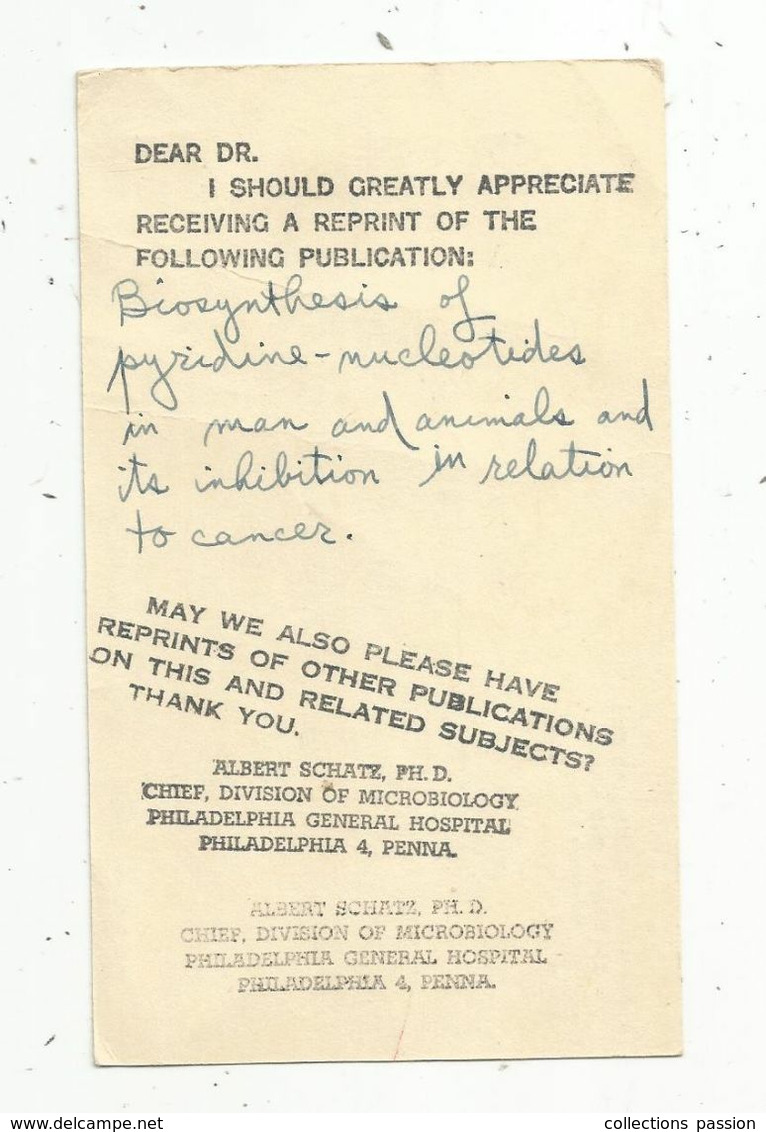 DEAR DR.
I SHOULD GREATLY APPRECIATE
RECEIVING A REPRINT OF THE
FOLLOWING PUBLICATION:
Biosynthesis of
pyridine-nucleotides
in man and animals and
its inhibition in relation
to cancer.
MAY WE ALSO PLEASE HAVE
REPRINTS OF OTHER PUBLICATIONS
ON THIS AND RELATED SUBJECTS?
THANK YOU.
ALBERT SCHATZ, PH.D.
CHIEF, DIVISION OF MICROBIOLOGY
PHILADELPHIA GENERAL HOSPITAL
PHILADELPHIA 4, PENNA.
ALBERT SCHATZ, PH.D.
CHIEF, DIVISION OF MICROBIOLOGY
PHILADELPHIA GENERAL HOSPITAL
PHILADELPHIA 4, PENNA.
www.delcampe.net
collections passion